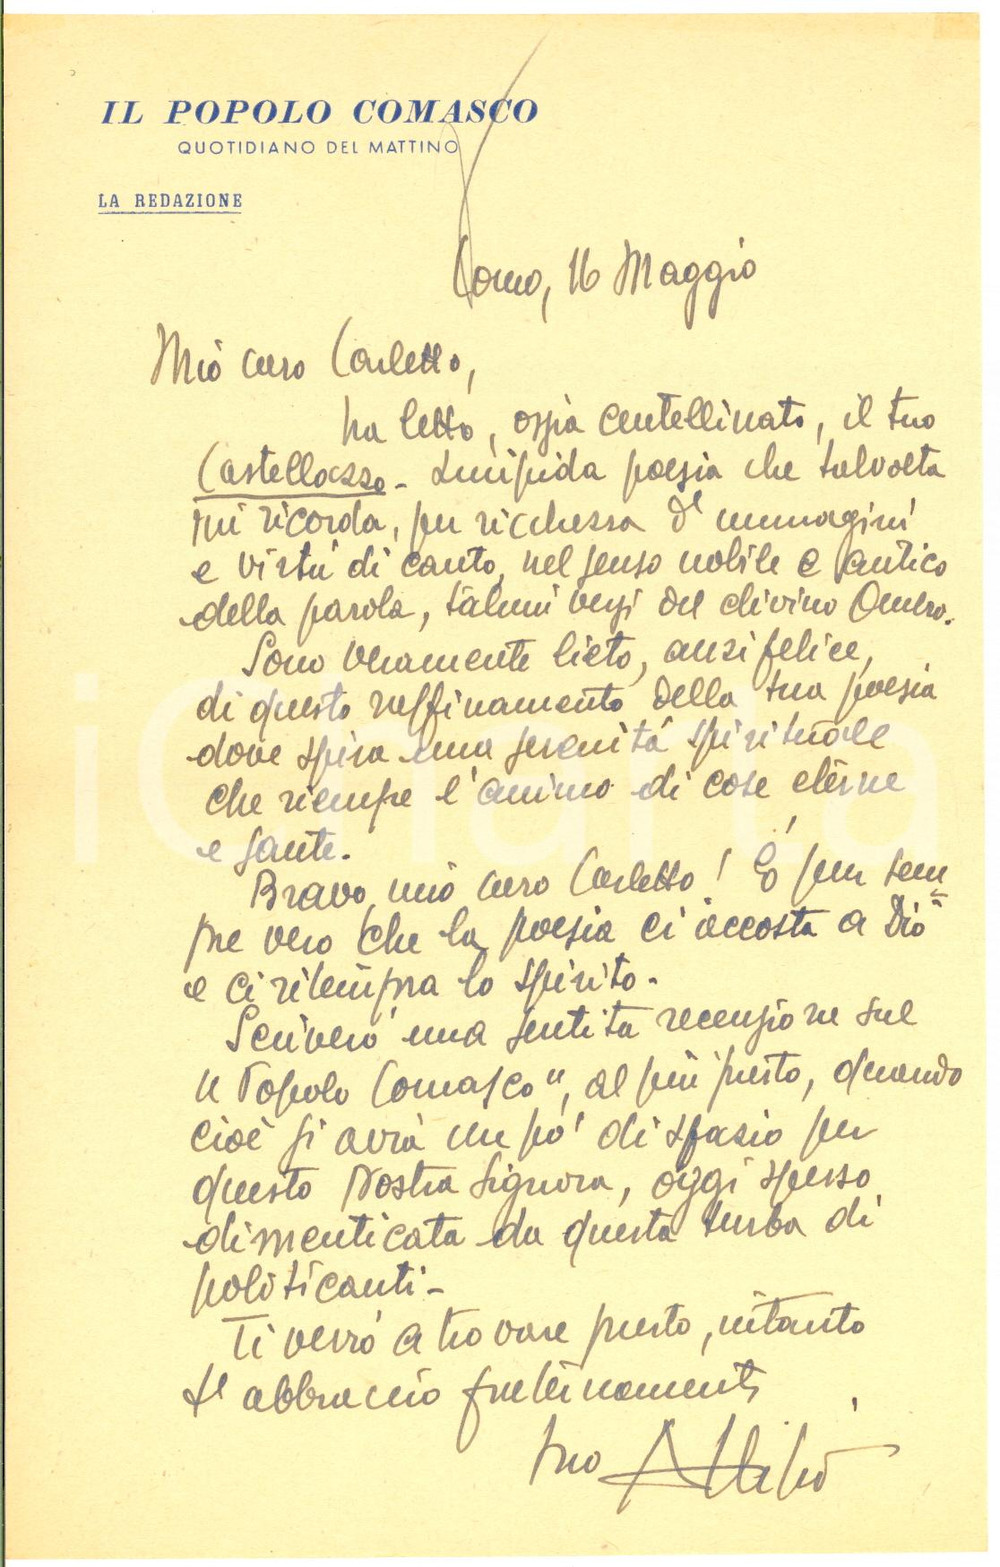 IL POPOLO COMASCO
QUOTIDIANO DEL MATTINO
LA REDAZIONE
Como, 16 Maggio
Mio caro Carletto,
ho letto, ossia centellinato, il tuo
Castellazzo - Limpida poesia che talvolta
mi ricorda, per ricchezza d'immagini
e virtù di canto, nel senso nobile e antico
della parola, taluni versi del divino Omero.
Sono veramente lieto, anzi felice,
di questo raffinamento della tua poesia
dove spira una serenità spirituale
che riempie l'animo di cose eterne
e sante.
Bravo, mio caro Carletto! È pur sem=
pre vero che la poesia ci accosta a Dio
e ci ritempra lo spirito.
Scriverò una sentita recensione sul
"Popolo Comasco", al più presto, quando
cioè si avrà un po' di spazio per
questa Nostra Signora, oggi spesso
dimenticata da questa turba di
politicanti -
Ti verrò a trovare presto, intanto
t'abbraccio fraternamente
tuo
iCharta